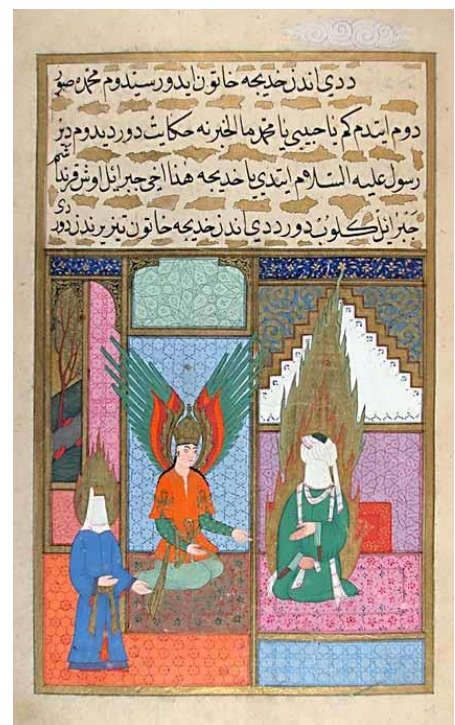 ددي اندن خديجه خاتون ايدور سيندوم محمده صور
دوم ايتدم كم يا حبيبي يا محمد ما الخبر نه حكايت دور ديدوم در
رسول عليه السلام ايتدي يا خديجه هذا اخي جبرائيل اوش قرنداشم
جبرائيل كلوب دور ددي اندن خديجه خاتون تيز يرندن دوردي